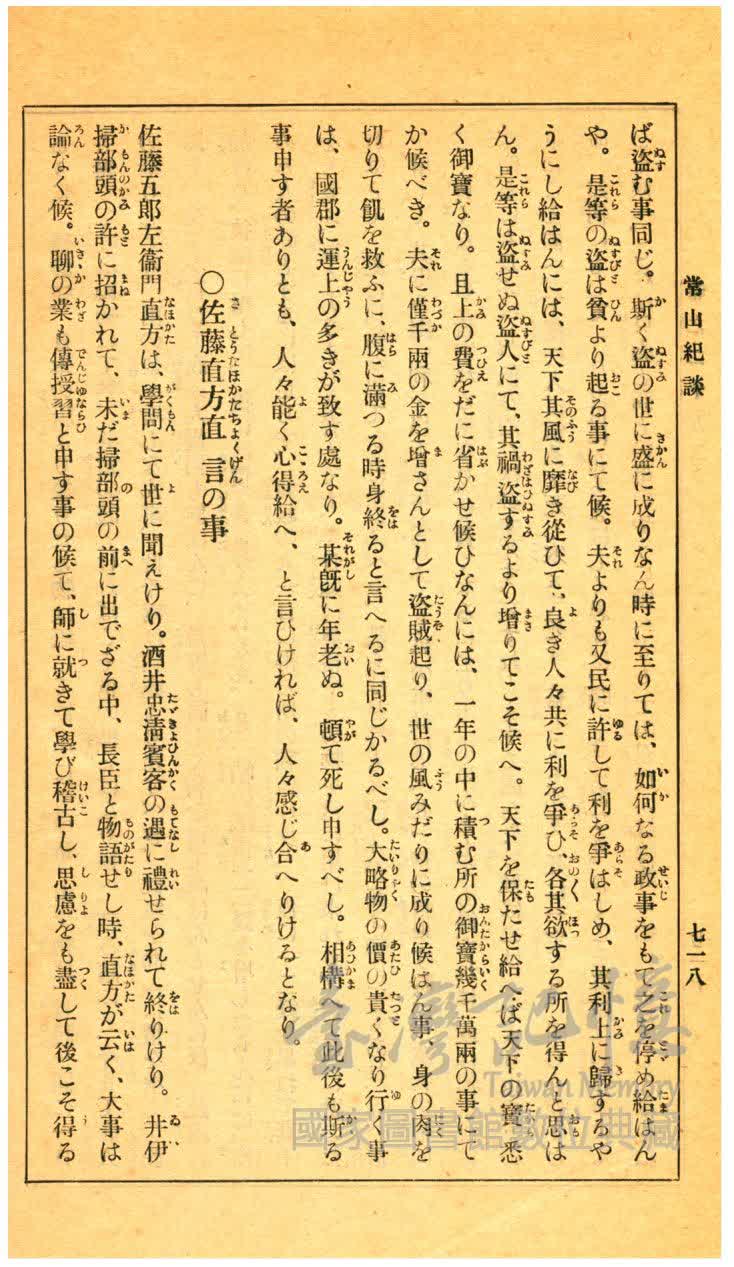 常山紀談
七一八
ば盜む事同じ。斯く盜の世に盛に成りなん時に至りては、如何なる政事をもて之を停め給はん
や。是等の盜は貧より起る事にて候。夫よりも又民に許して利を爭はしめ、其利上に歸するや
うにし給はんには、天下其風に靡き從ひて、良き人々共に利を爭ひ、各其欲する所を得んと思は
ん。是等は盜せぬ盜人にて、其禍盜するより增りてこそ候へ。天下を保たせ給へば天下の寶悉
く御寶なり。且上の費をだに省かせ候ひなんには、一年の中に積む所の御寶幾千萬兩の事にて
か候べき。夫に僅千兩の金を增さんとして盜賊起り、世の風みだりに成り候はん事、身の肉を
切りて飢を救ふに、腹に滿つる時身終ると言へるに同じかるべし。大略物の價の貴くなり行く事
は、國郡に運上の多きが致す處なり。某旣に年老ぬ。頓て死し申すべし。相構へて此後も斯る
事申す者ありとも、人々能く心得給へ、と言ひければ、人々感じ合へりけるとなり。
○佐藤直方直言の事
佐藤五郞左衞門直方は、學問にて世に聞えけり。酒井忠淸賓客の遇に禮せられて終りけり。井伊
掃部頭の許に招かれて、未だ掃部頭の前に出でざる中、長臣と物語せし時、直方が云く、大事は
論なく候。聊の業も傳授習と申す事の候て、師に就きて學び稽古し、思慮をも盡して後こそ得る
臺灣記憶
Taiwan Memory
國家圖書館數位典藏